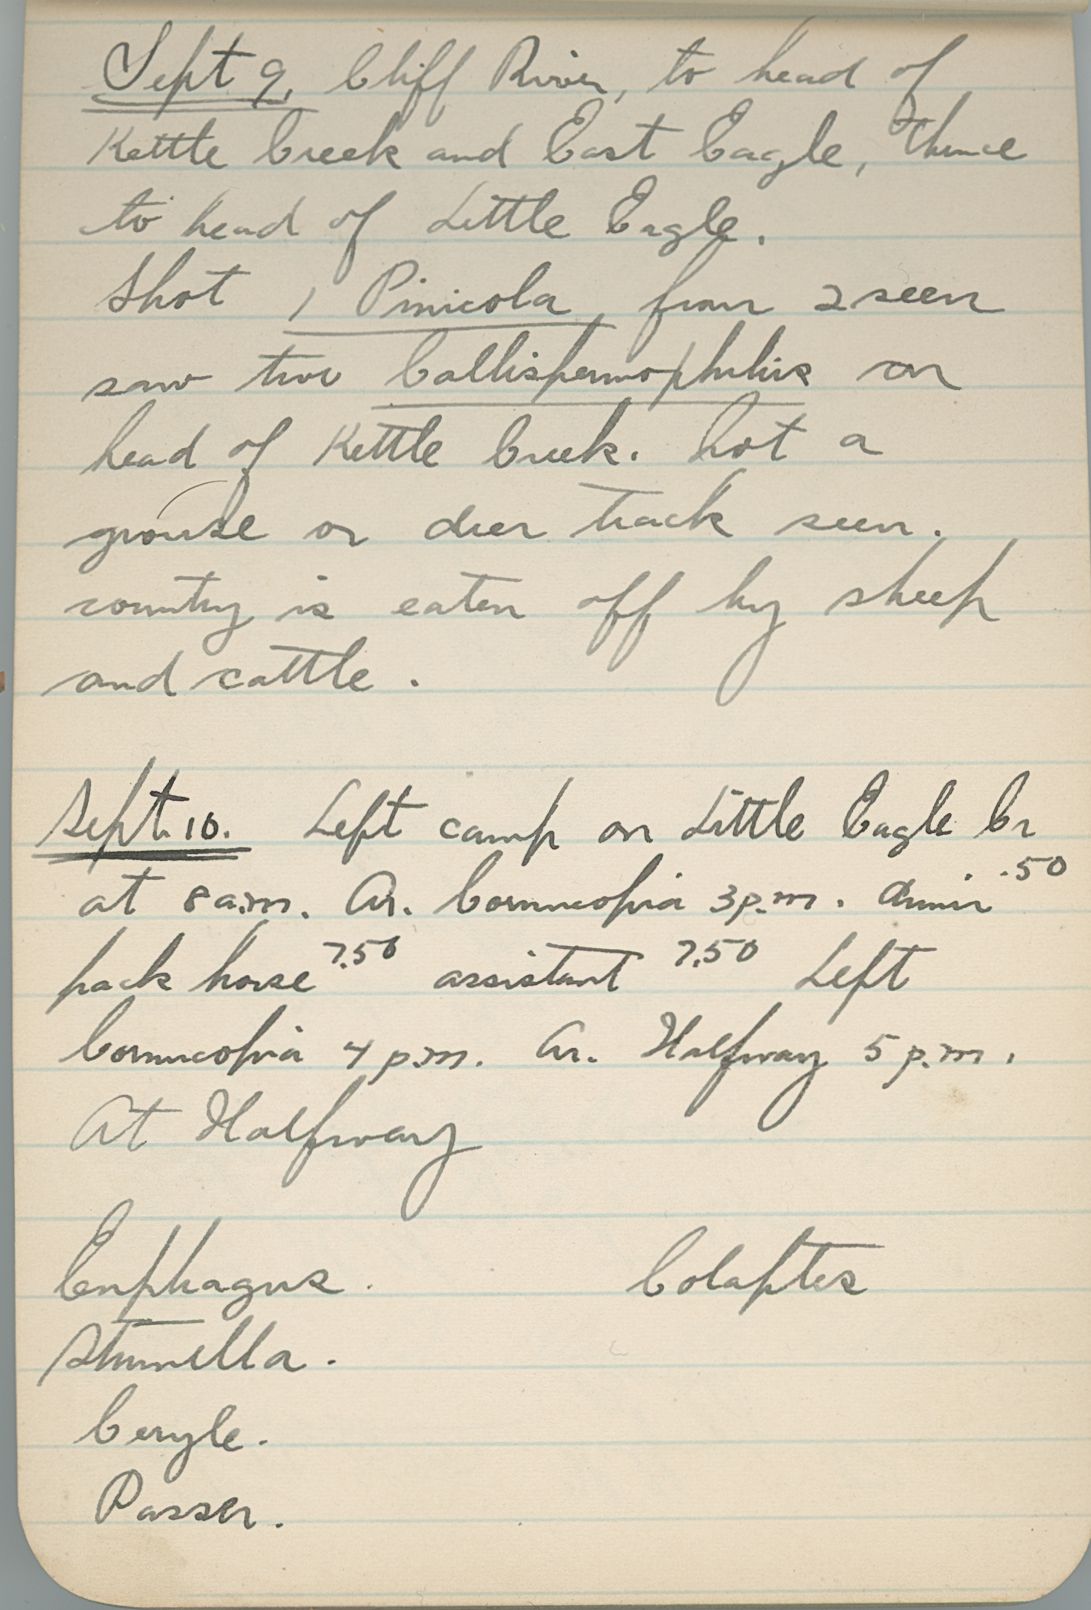 Sept 9, Cliff River, to head of
Kettle Creek and East Eagle, thence
to head of Little Eagle.
Shot 1 Pinicola from 2 seen
saw two Callispermophilus on
head of Kettle Creek. Not a
grouse or deer track seen.
country is eaten off by sheep
and cattle.
Sept. 10. Left camp on Little Eagle Cr
at 8 a.m. Ar. Cornucopia 3 p.m. dinner .50
pack horse 7.50 assistant 7.50 Left
Cornucopia 4 p.m. Ar. Halfway 5 p.m.
At Halfway
Euphagus. Colaptes
Sturnella.
Ceryle.
Passer.